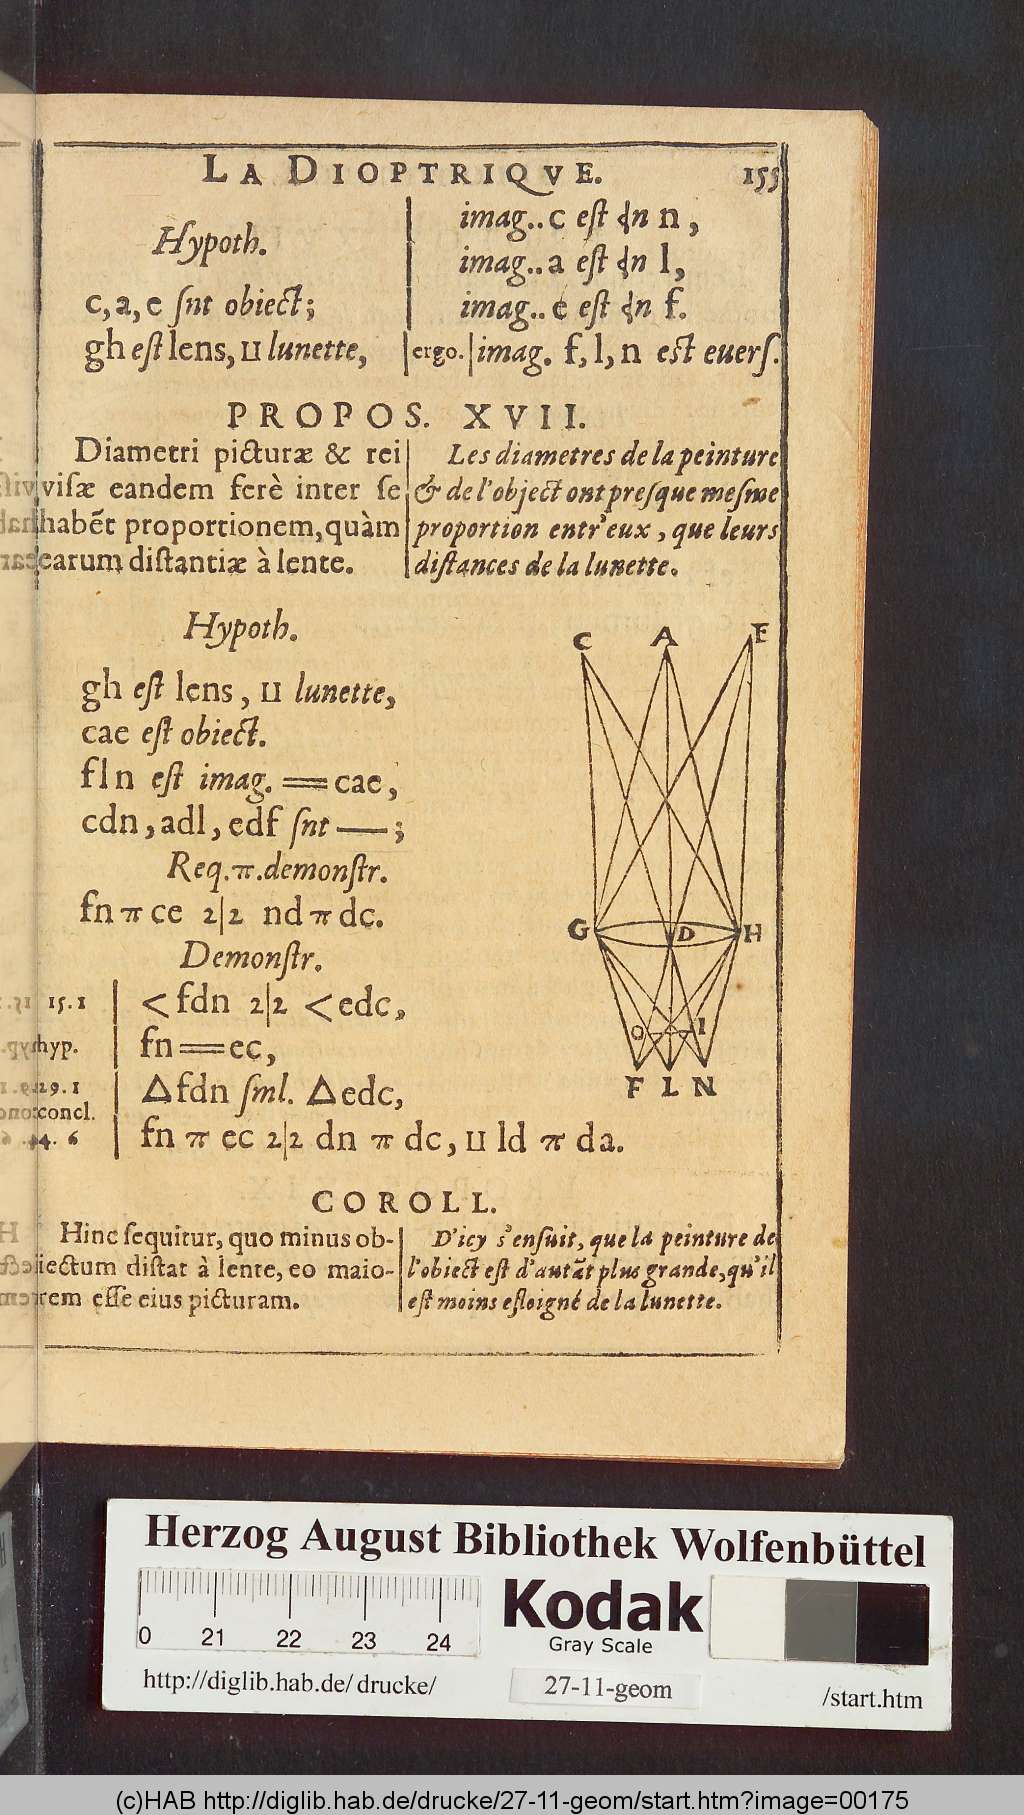 LA DIOPTRIQVE. 155
Hypoth.
c, a, e snt obiect;
gh est lens, ⊔ lunette,
imag.. c est ɖn n,
imag.. a est ɖn l,
imag.. e est ɖn f.
ergo. imag. f, l, n est euerſ.
PROPOS. XVII.
Diametri picturæ & rei
viſæ eandem ferè inter ſe
habẽt proportionem, quàm
earum diſtantiæ à lente.
Les diametres de la peinture
& de l'object ont preſque meſme
proportion entr'eux, que leurs
diſtances de la lunette.
Hypoth.
gh eſt lens, ⊔ lunette,
cae eſt obiect.
fln eſt imag. == cae,
cdn, adl, edf ſnt —;
Req.π.demonſtr.
fn π ce 2|2 nd π dc.
Demonſtr.
15.1 < fdn 2|2 < edc,
hyp. fn == ec,
29.1 Δ fdn ſml. Δ edc,
concl.
4.6 fn π ec 2|2 dn π dc, ⊔ ld π da.
C A E
G D H
O I
F L N
COROLL.
Hinc ſequitur, quo minus ob-
iectum diſtat à lente, eo maio-
rem eſſe eius picturam.
D'icy s'enſuit, que la peinture de
l'obiect eſt d'autãt plus grande, qu'il
eſt moins eſloigné de la lunette.
Herzog August Bibliothek Wolfenbüttel
0 21 22 23 24
Kodak
Gray Scale
http://diglib.hab.de/drucke/ 27-11-geom /start.htm
(c)HAB http://diglib.hab.de/drucke/27-11-geom/start.htm?image=00175